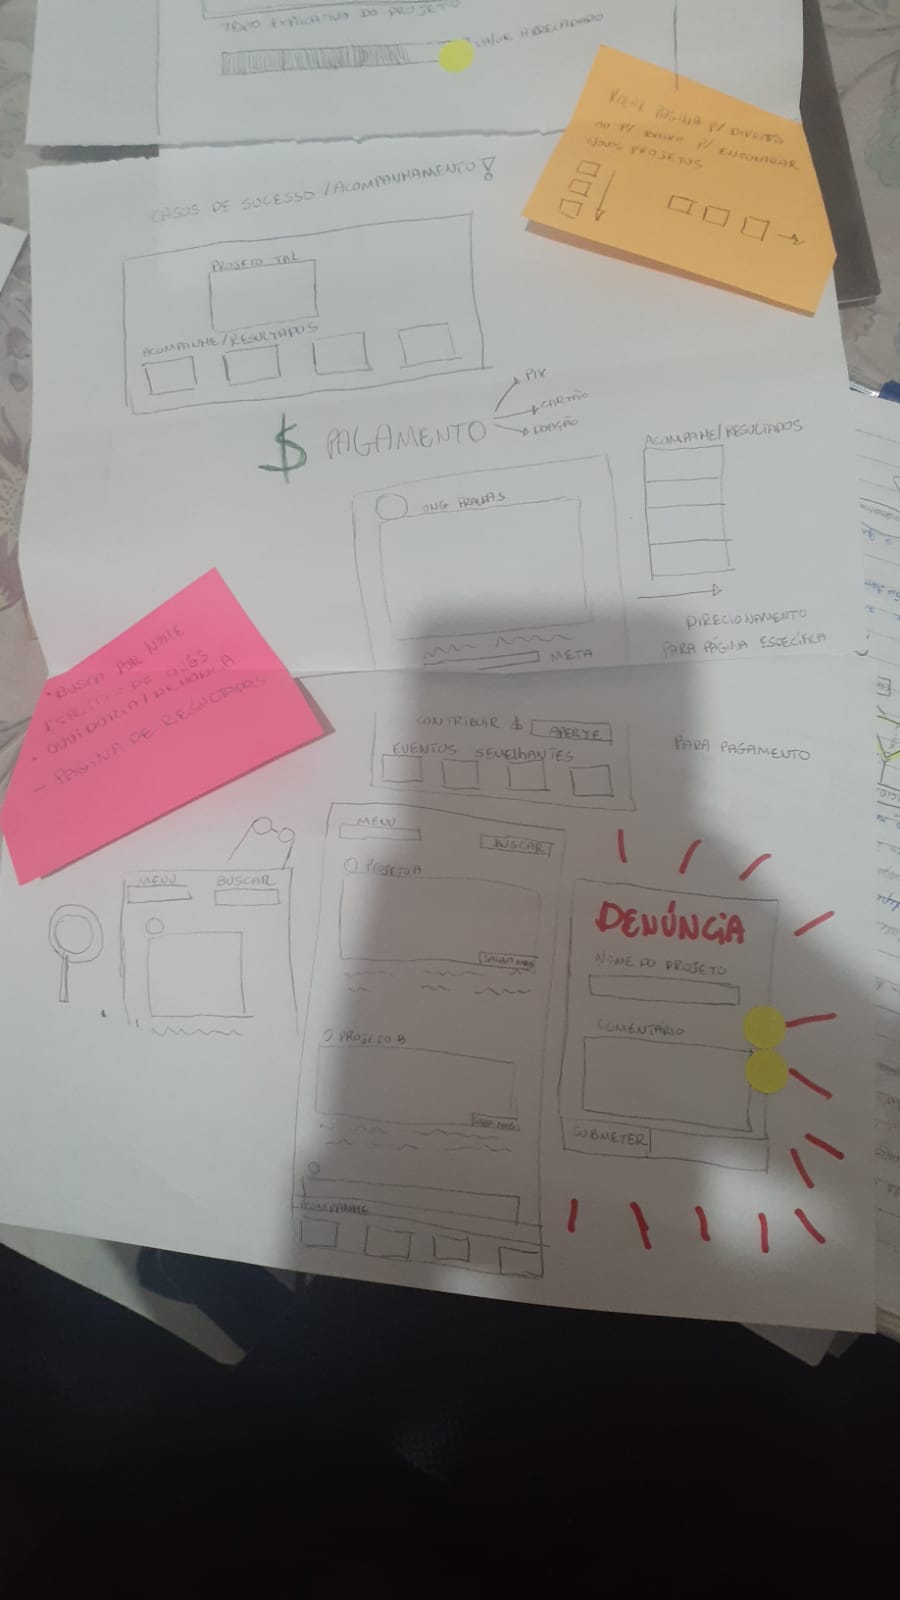 TEXTO EXPLICATIVO DO PROJETO
VALOR ARRECADADO
ROLAR PÁGINA P/ DIREITA
OU P/ BAIXO P/ ENCONTRAR
NOVOS PROJETOS
CASOS DE SUCESSO / ACOMPANHAMENTO!
PROJETO TAL
ACOMPANHE/RESULTADOS
$ PAGAMENTO
PIX
CARTÃO
DOAÇÃO
ACOMPANE/RESULTADOS
ONG
META
DIRECIONAMENTO
PARA PÁGINA ESPECÍFICA
• BUSCA POR NOME
ESPECÍFICO DE ONGS
• OUVIDORIA/DENÚNCIA
- PÁGINA DE RESULTADOS
CONTRIBUIR $ APERTE
EVENTOS SEMELHANTES
PARA PAGAMENTO
MENU BUSCAR
MENU
BUSCAR
PROJETO A
SAIBA MAIS
PROJETO B
SAIBA MAIS
ACOMPANHE
DENÚNCIA
NOME DO PROJETO
COMENTÁRIO
SUBMETER